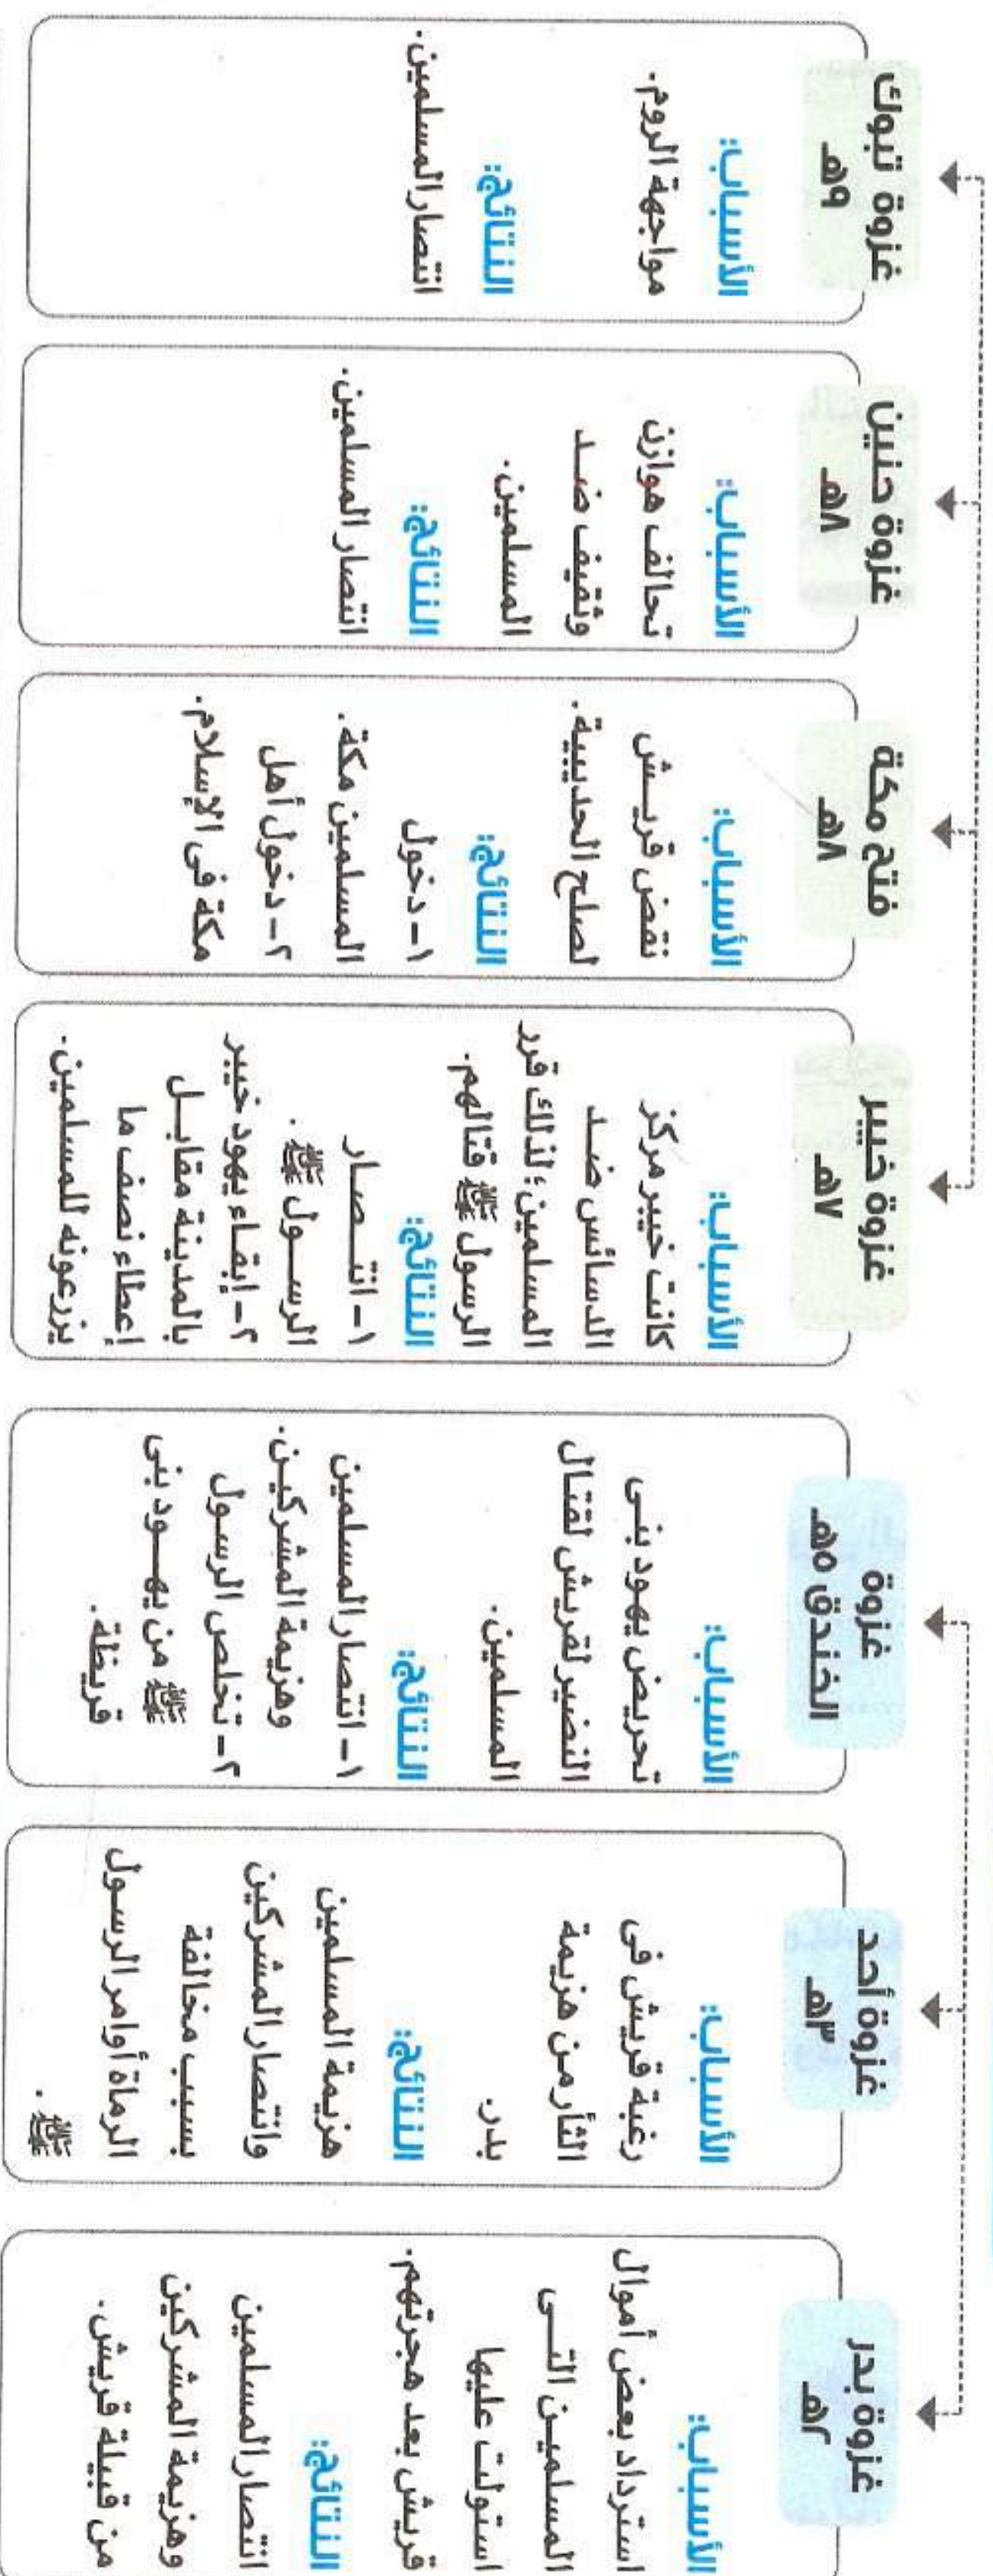 غزوة بدر
٢هـ
الأسباب:
استرداد بعض أموال
المسلمين التـــى
استولت عليها
قريش بعد هجرتهم.
النتائج:
انتصار المسلمين
وهزيمة المشركين
من قبيلة قريش.
غزوة أحد
٣هـ
الأسباب:
رغبة قريش فى
الثأر من هزيمة
بدر.
النتائج:
هزيمة المسلمين
وانتصار المشركين
بسبب مخالفة
الرماة أوامر الرسول
ﷺ .
غزوة
الخندق ٥هـ
الأسباب:
تحريض يهود بنـى
النضير لقريش لقتال
المسلمين.
النتائج:
١- انتصار المسلمين
وهزيمة المشركين.
٢- تخلص الرسول
ﷺ من يهــود بنى
قريظة.
غزوة خيبر
٧هـ
الأسباب:
كانت خيبر مركز
الدسائس ضــد
المسلمين؛ لذلك قرر
الرسول ﷺ قتالهم.
النتائج:
١- انتــصــار
الرســول ﷺ .
٢- إبقاء يهود خيبر
بالمدينة مقابــل
إعطاء نصف ما
يزرعونه للمسلمين.
فتح مكة
٨هـ
الأسباب:
نقض قريــش
لصلح الحديبية.
النتائج:
١- دخول
المسلمين مكة.
٢- دخول أهل
مكة فى الإسلام.
غزوة حنين
٨هـ
الأسباب:
تحالف هوازن
وثقيف ضــد
المسلمين.
النتائج:
انتصار المسلمين.
غزوة تبوك
٩هـ
الأسباب:
مواجهة الروم.
النتائج:
انتصار المسلمين.